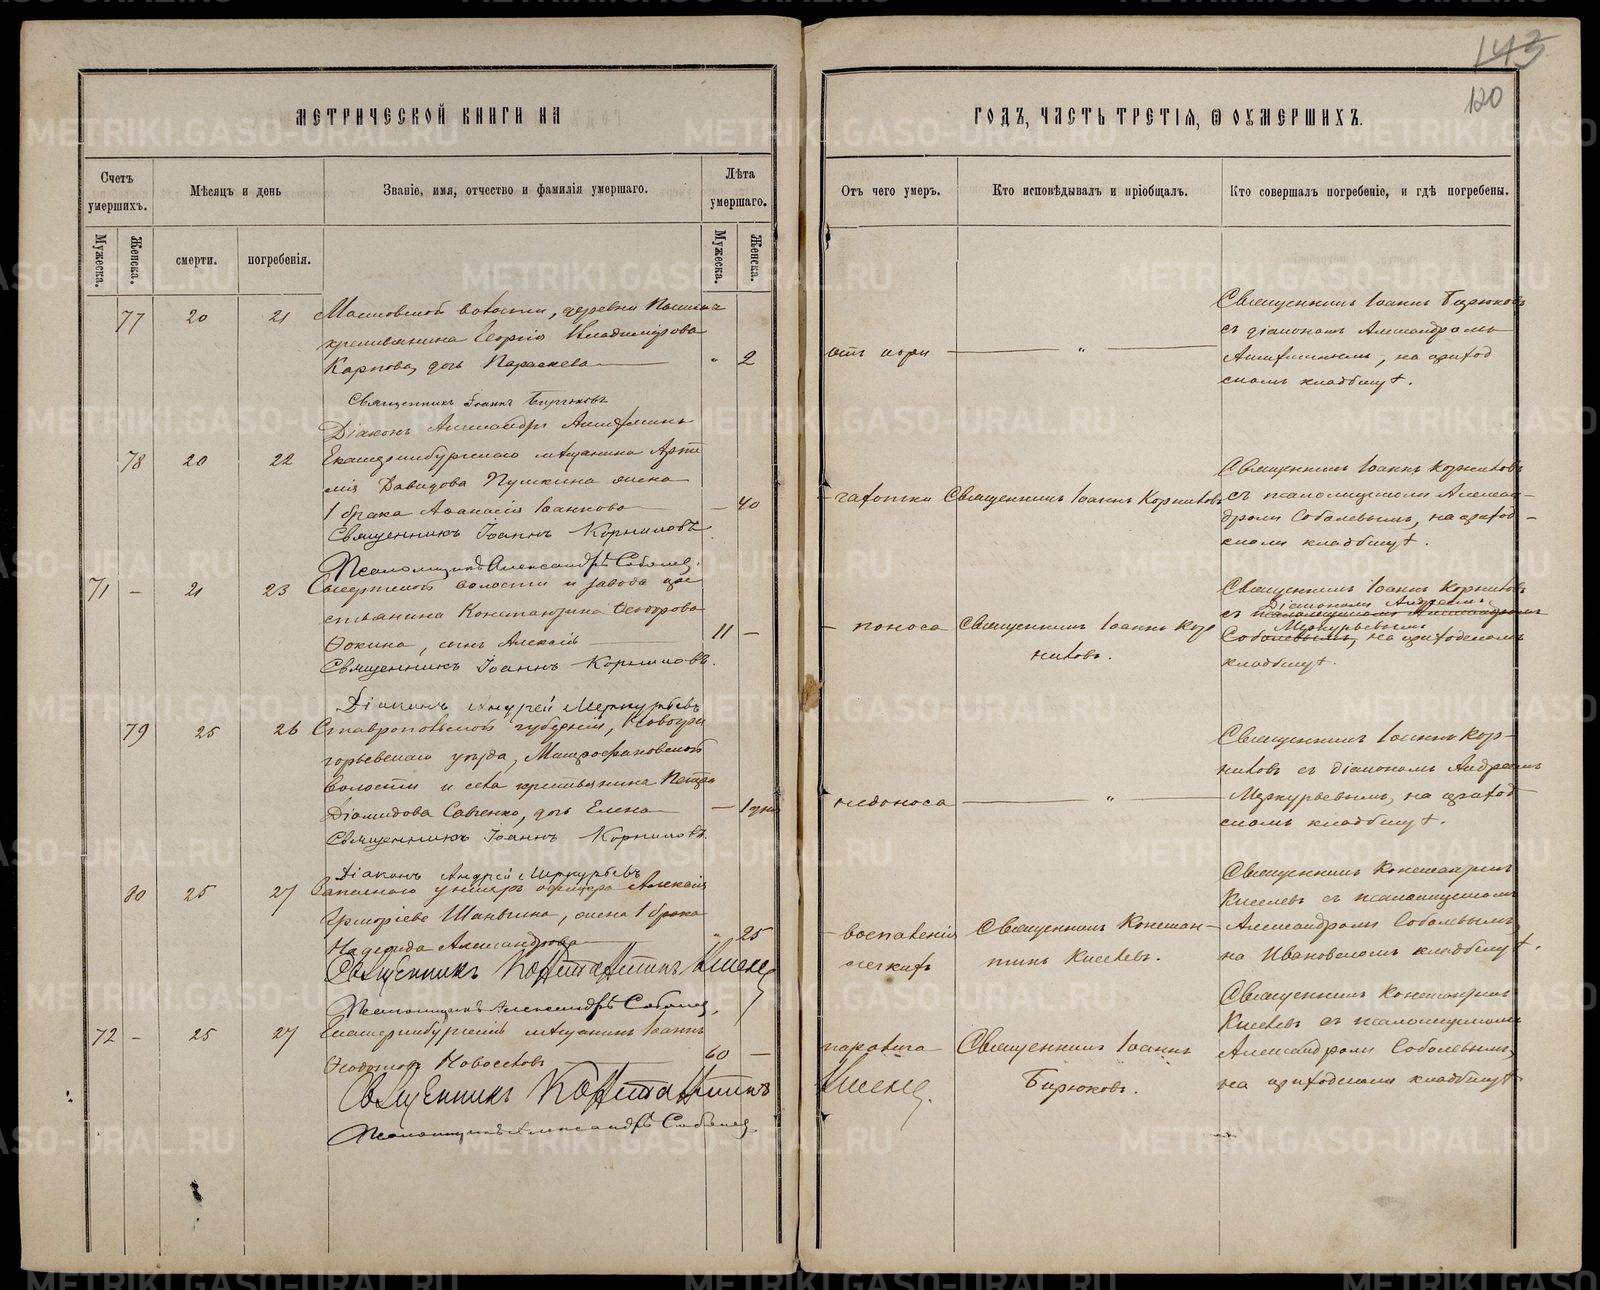 143
120
МЕТРИЧЕСКОЙ КНИГИ НА
ГОДЪ, ЧАСТЬ ТРЕТІЯ, Ѿ ОУМЕРШИХЪ.
Счетъ умершихъ.
Мѣсяцъ и день
Званіе, имя, отчество и фамилія умершаго.
Лѣта умершаго.
Отъ чего умеръ.
Кто исповѣдывалъ и пріобщалъ.
Кто совершалъ погребеніе, и гдѣ погребены.
Мужеска.
Женска.
смерти.
погребенія.
Мужеска.
Женска.
77 20 21
волости, деревни
крестьянина Георгія Владимірова
Карпова, дочь Параскева — " 2
отъ кори — " —
Священникъ Іоаннъ Бирюковъ
съ діакономъ Александромъ
на приход
скомъ кладбищѣ.
Священникъ Іоаннъ Бирюковъ
Діаконъ Александръ
78 20 22
Екатеринбургскаго мѣщанина Арте
мія Давидова Пушкина жена
1 брака Аѳанасія Іоаннова — 40
– чахотки
Священникъ Іоаннъ Корниловъ
Священникъ Іоаннъ Корниловъ
съ псаломщикомъ Алексан-
дромъ Соболевымъ, на приход-
скомъ кладбищѣ.
Священникъ Іоаннъ Корниловъ
Псаломщикъ Александръ Соболевъ.
71 – 21 23
Сысертской волости и завода кре
стьянина Константина Ѳеодорова
Ѳокина, сынъ Алексій 11 –
– поноса
Священникъ Іоаннъ Кор
ниловъ.
Священникъ Іоаннъ Корниловъ
Діакономъ Андреемъ
съ псаломщикомъ Александромъ
Меркурьевымъ
Соболевымъ, на приходскомъ
кладбищѣ.
Священникъ Іоаннъ Корниловъ.
Діаконъ Андрей Меркурьевъ
79 25 26
Ставропольской губерніи, Новогри
горьевскаго уѣзда, Митрофановской
волости и села крестьянина Петра
Діомидова Савченко, дочь Елена — 1 дня
– недоноса — " —
Священникъ Іоаннъ Кор-
ниловъ съ діакономъ Андреемъ
Меркурьевымъ, на приход-
скомъ кладбищѣ.
Священникъ Іоаннъ Корниловъ.
Діаконъ Андрей Меркурьевъ
80 25 27
Запаснаго унтеръ офицера Алексія
Григоріева Шаньгина, жена 1 брака
Надежда Александрова — " 25
– воспаленія
легкихъ
Священникъ Констан-
тинъ Киселевъ.
Священникъ Константинъ
Киселевъ съ псаломщикомъ
Александромъ Соболевымъ
на Ивановскомъ кладбищѣ.
Священникъ Константинъ Киселевъ
Псаломщикъ Александръ Соболевъ.
72 – 25 27
Екатеринбургскій мѣщанинъ Іоаннъ
Ѳеодоровъ Новоселовъ — 60 —
паралича
Священникъ Іоаннъ
Бирюковъ.
Священникъ Константинъ
Киселевъ съ псаломщикомъ
Александромъ Соболевымъ,
на приходскомъ кладбищѣ
Священникъ Константинъ Киселевъ.
Псаломщикъ Александръ Соболевъ
METRIKI.GASO-URAL.RU